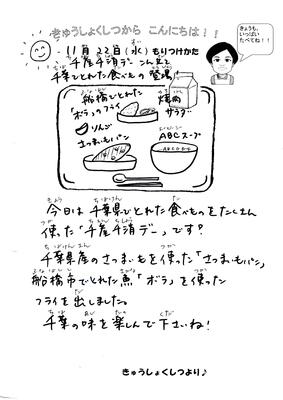 きゅうしょくしつから こんにちは！！
きょうも、
いっぱい
たべてね！！
11月22日（水）もりつけかた
千産千消デーこん立
千葉でとれた食べもの登場！
船橋でとれた
「ボラ」のフライ
焼肉
サラダ
りんご
さつまいもパン
ABCスープ
今日は千葉県でとれた食べものをたくさん
使った「千産千消デー」です？
千葉県産のさつまいもを使った「さつまいもパン」
船橋市でとれた魚「ボラ」を使った
フライを出しました。
千葉の味を楽しんで下さいね！
きゅうしょくしつより♪